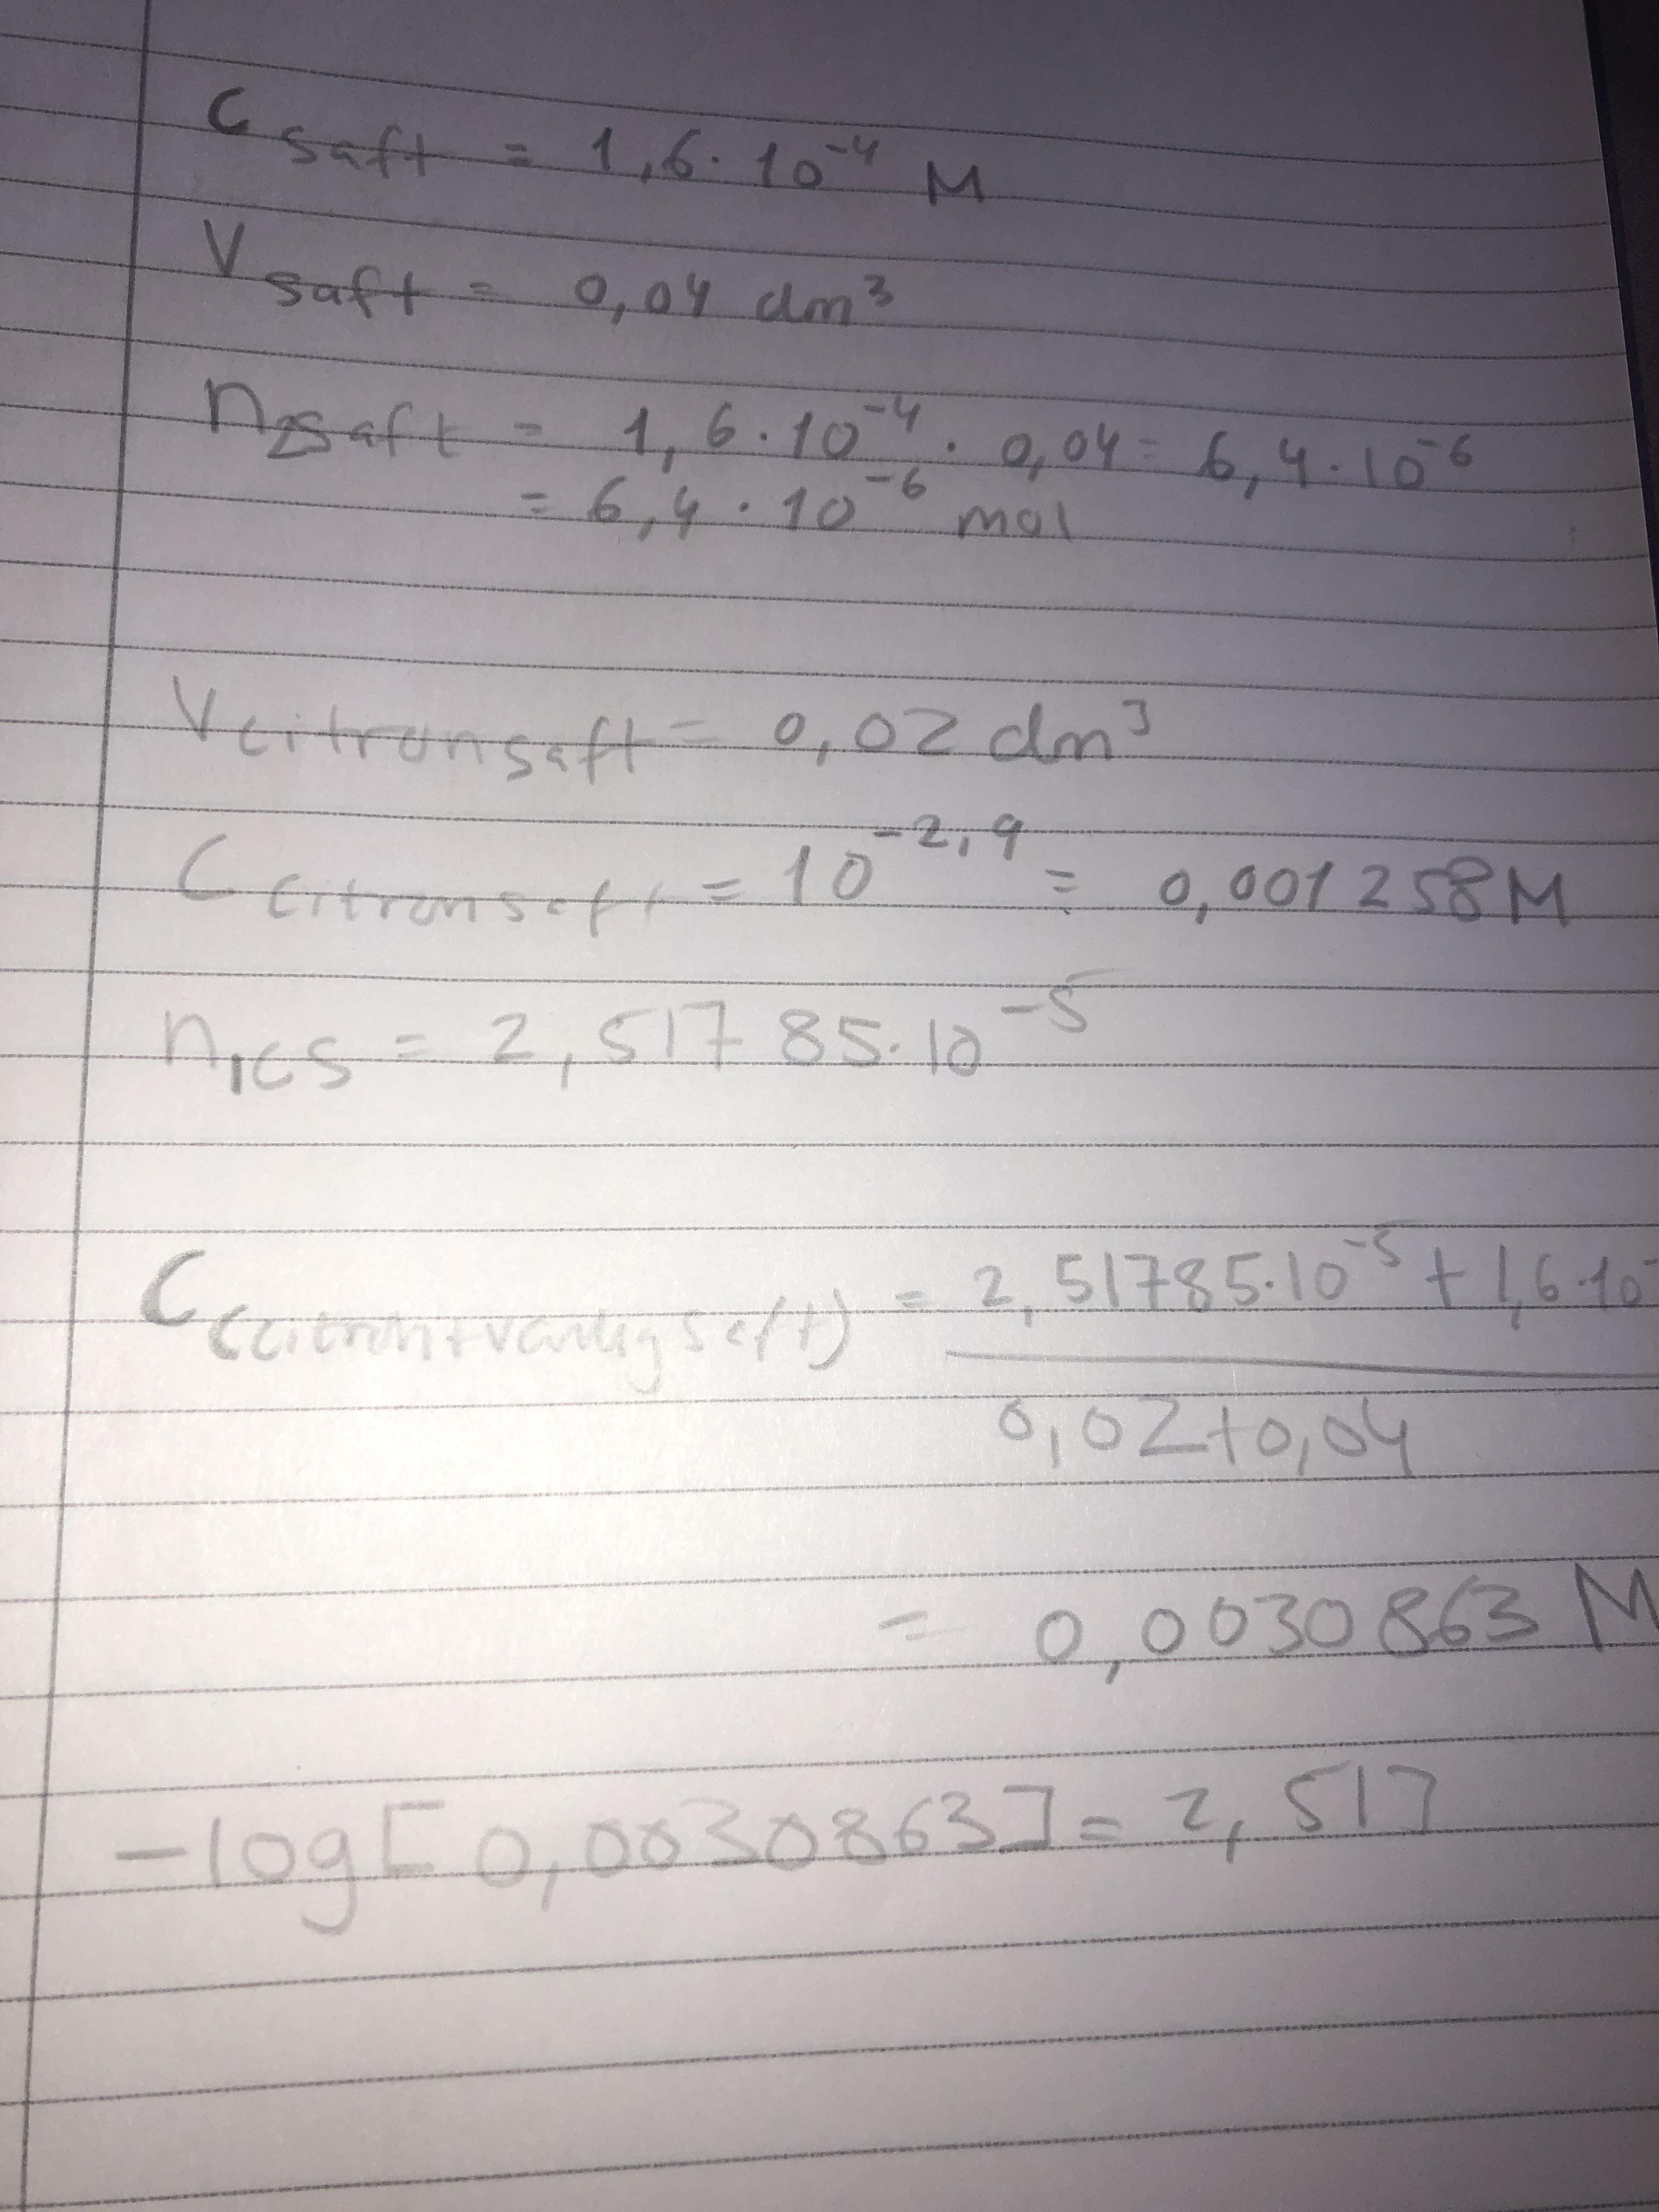 C saft = 1,6·10⁻⁴ M
V saft = 0,04 dm³
n saft = 1,6·10⁻⁴ · 0,04 = 6,4·10⁻⁶
= 6,4·10⁻⁶ mol
V citronsaft = 0,02 dm³
C citronsaft = 10⁻²,⁹ = 0,001258M
n cs = 2,51785·10⁻⁵
C (citron+vanlig saft) = 2,51785·10⁻⁵ + 1,6·10
0,02+0,04
= 0,0030863M
-log[0,0030863] = 2,517